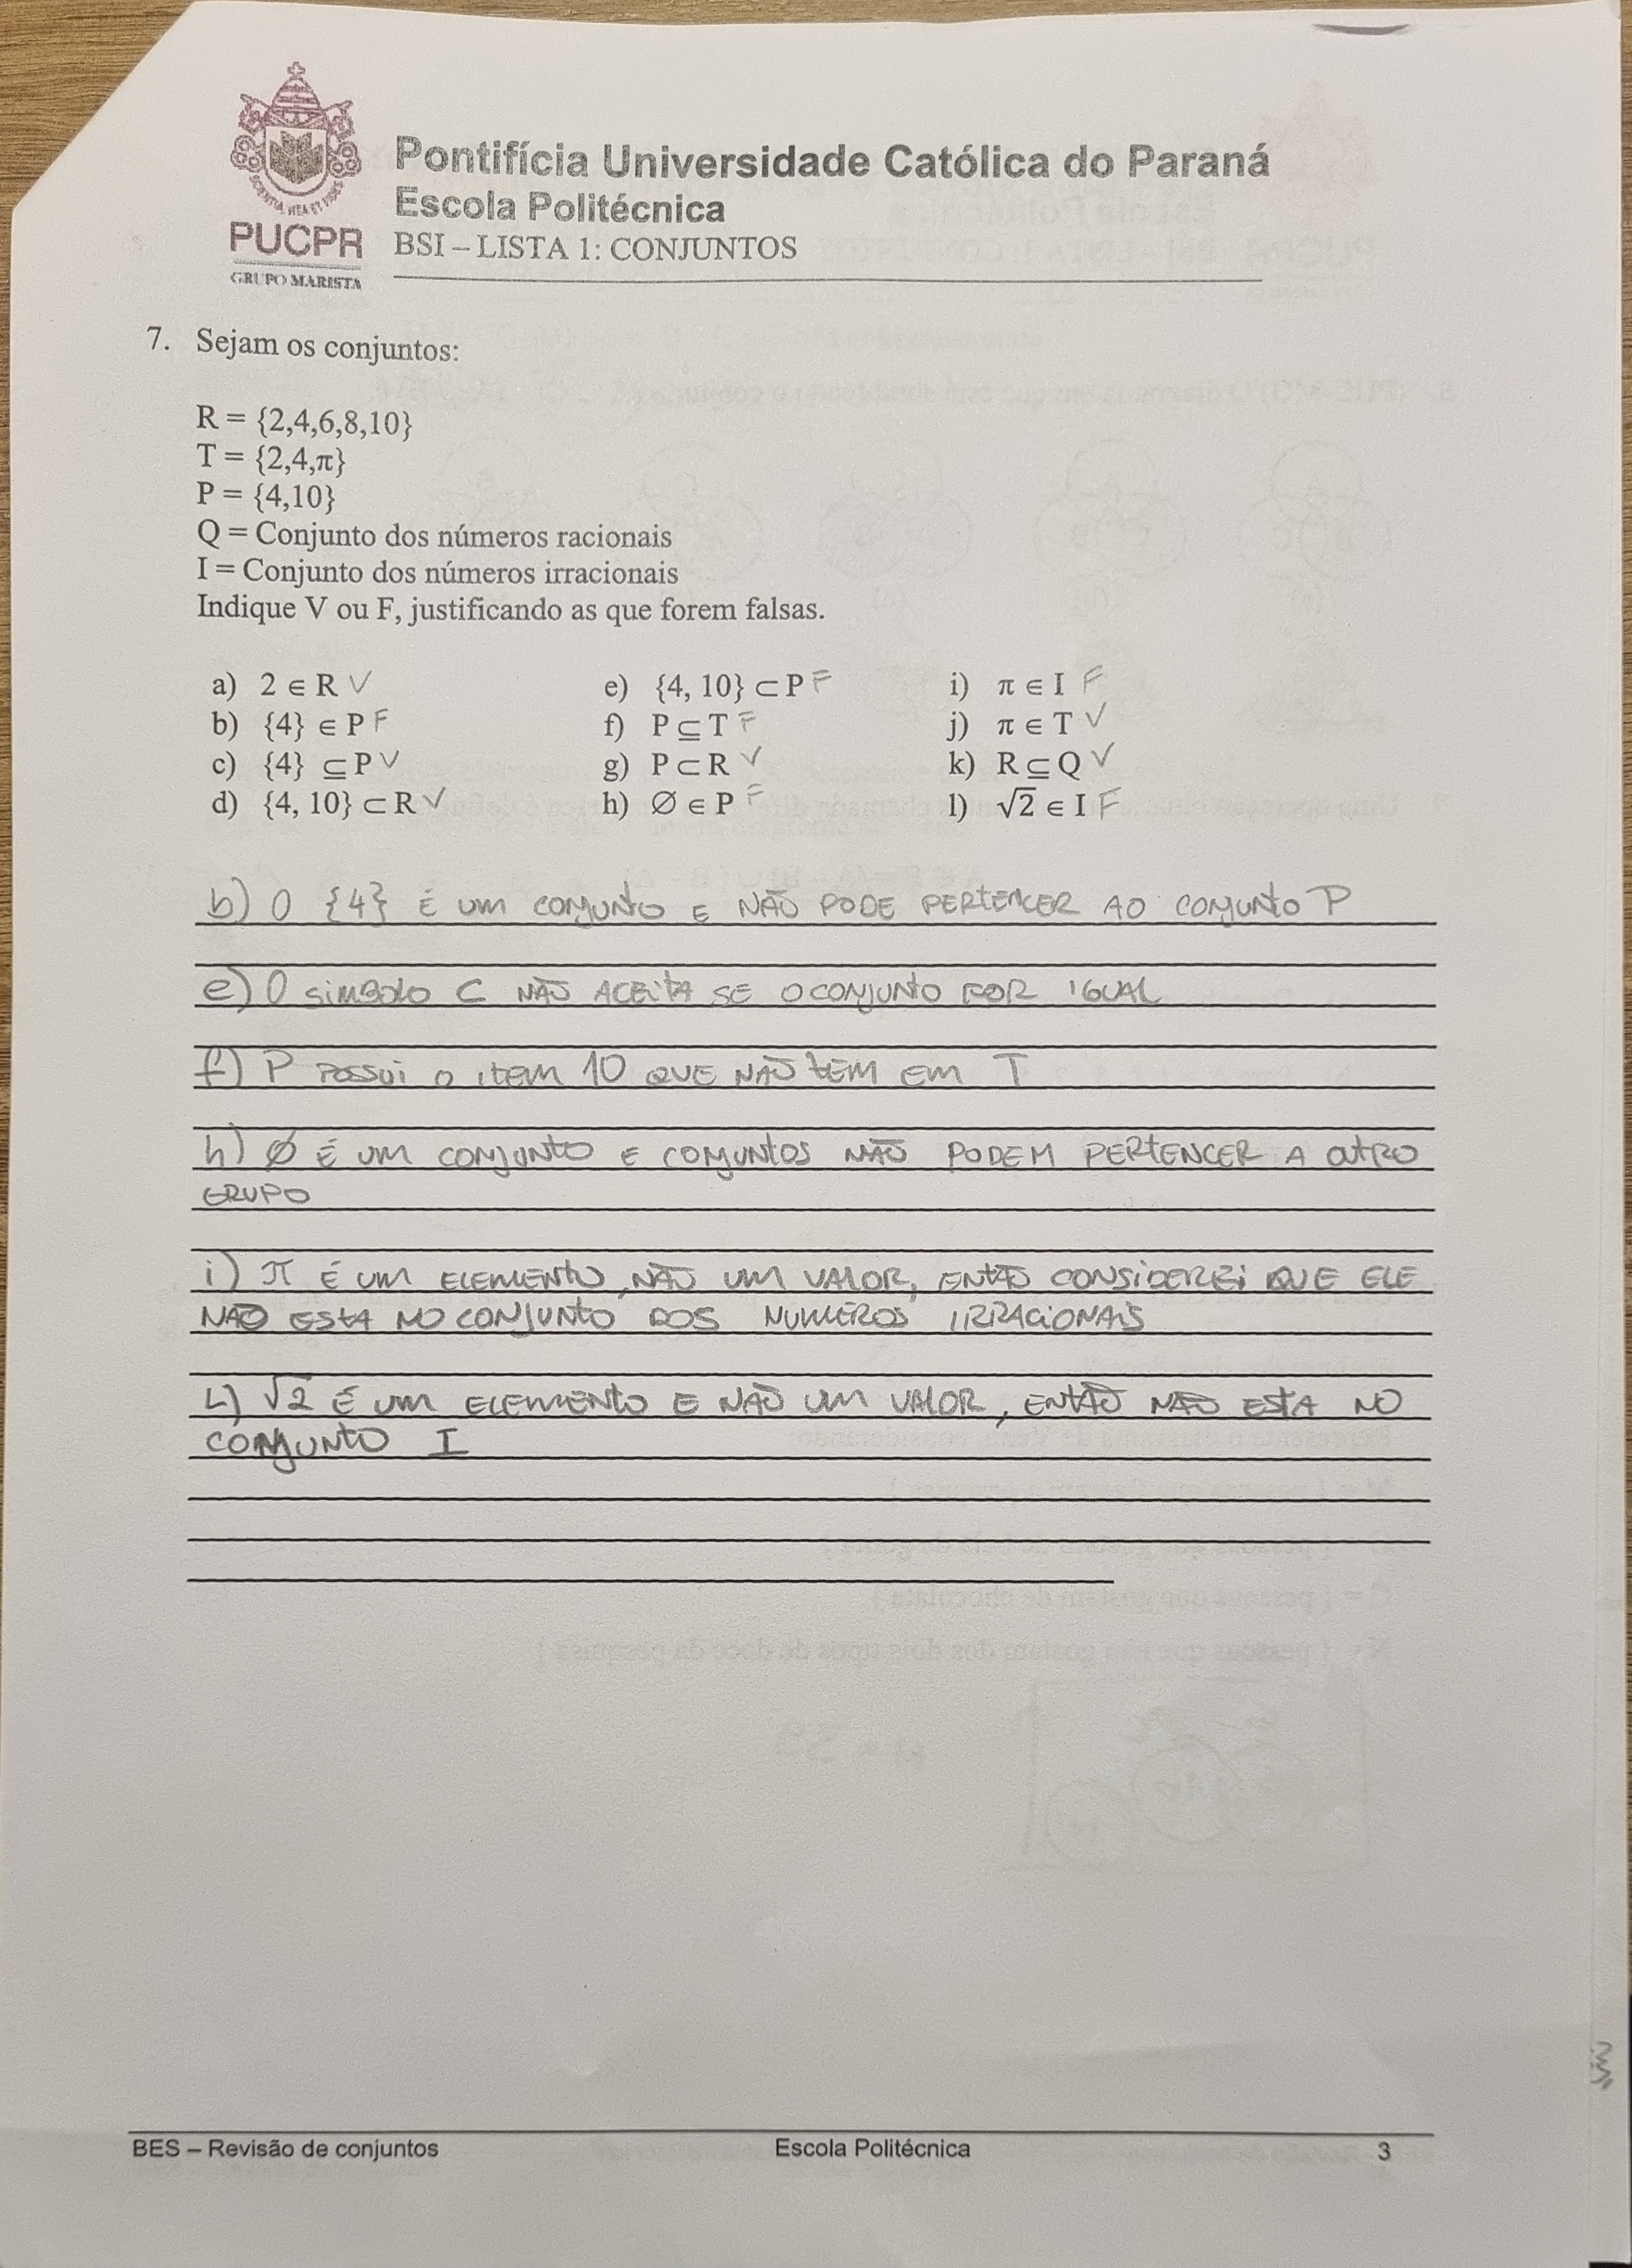 Pontifícia Universidade Católica do Paraná
Escola Politécnica
PUCPR
BSI – LISTA 1: CONJUNTOS
GRUPO MARISTA
7. Sejam os conjuntos:
R = {2,4,6,8,10}
T = {2,4,π}
P = {4,10}
Q = Conjunto dos números racionais
I = Conjunto dos números irracionais
Indique V ou F, justificando as que forem falsas.
a) 2 ∈ R V e) {4, 10} ⊂ P F i) π ∈ I F
b) {4} ∈ P F f) P ⊆ T F j) π ∈ T V
c) {4} ⊆ P V g) P ⊂ R V k) R ⊆ Q V
d) {4, 10} ⊂ R V h) ∅ ∈ P F l) √2 ∈ I F
b) O {4} É UM CONJUNTO E NÃO PODE PERTENCER AO CONJUNTO P
e) O SIMBOLO ⊂ NÃO ACEITA SE O CONJUNTO FOR IGUAL
f) P POSSUI O ITEM 10 QUE NÃO TEM EM T
h) Ø É UM CONJUNTO E CONJUNTOS NÃO PODEM PERTENCER A OUTRO
GRUPO
i) π É UM ELEMENTO, NÃO UM VALOR, ENTÃO CONSIDEREI QUE ELE
NÃO ESTA NO CONJUNTO DOS NUMEROS IRRACIONAIS
L) √2 É UM ELEMENTO E NÃO UM VALOR, ENTÃO NÃO ESTA NO
CONJUNTO I
BES – Revisão de conjuntos Escola Politécnica 3